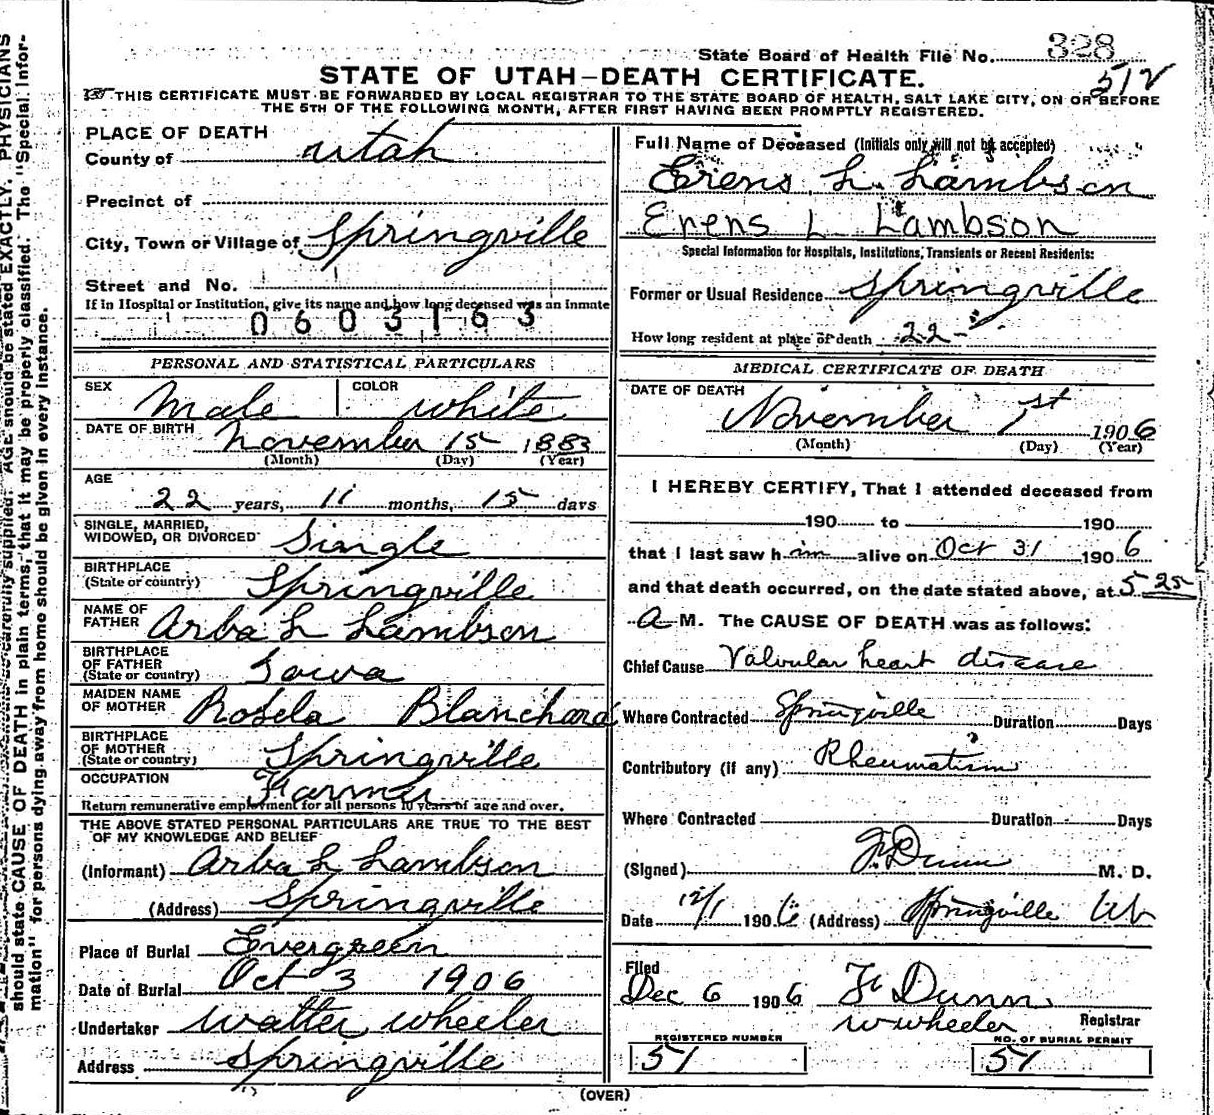 State Board of Health File No. 328
STATE OF UTAH—DEATH CERTIFICATE. 512
THIS CERTIFICATE MUST BE FORWARDED BY LOCAL REGISTRAR TO THE STATE BOARD OF HEALTH, SALT LAKE CITY, ON OR BEFORE
THE 5TH OF THE FOLLOWING MONTH, AFTER FIRST HAVING BEEN PROMPTLY REGISTERED.
PLACE OF DEATH
County of Utah
Precinct of
City, Town or Village of Springville
Street and No.
If in Hospital or Institution, give its name and how long deceased was an inmate
0603163
PERSONAL AND STATISTICAL PARTICULARS
SEX Male COLOR White
DATE OF BIRTH November 15 1883
(Month) (Day) (Year)
AGE
22 years, 11 months, 15 days
SINGLE, MARRIED,
WIDOWED, OR DIVORCED Single
BIRTHPLACE
(State or country) Springville
NAME OF
FATHER Arba L Lambson
BIRTHPLACE
OF FATHER
(State or country) Iowa
MAIDEN NAME
OF MOTHER Rosela Blanchard
BIRTHPLACE
OF MOTHER
(State or country) Springville
OCCUPATION Farmer
Return remunerative employment for all persons 10 years of age and over.
THE ABOVE STATED PERSONAL PARTICULARS ARE TRUE TO THE BEST
OF MY KNOWLEDGE AND BELIEF
(Informant) Arba L Lambson
(Address) Springville
Place of Burial Evergreen
Date of Burial Oct 3 1906
Undertaker Walter Wheeler
Address Springville
Full Name of Deceased (Initials only will not be accepted)
Erens L. Lambson
Erens L Lambson
Special Information for Hospitals, Institutions, Transients or Recent Residents:
Former or Usual Residence Springville
How long resident at place of death 22
MEDICAL CERTIFICATE OF DEATH
DATE OF DEATH
November 1st 1906
(Month) (Day) (Year)
I HEREBY CERTIFY, That I attended deceased from
190 to 190
that I last saw him alive on Oct 31 1906
and that death occurred, on the date stated above, at 5 25
A M. The CAUSE OF DEATH was as follows:
Chief Cause Valvular heart disease
Where Contracted Springville Duration Days
Contributory (if any) Rheumatism
Where Contracted Duration Days
(Signed) F. Dunn M. D.
Date 12/1 1906 (Address) Springville Ut
Filed
Dec 6 1906 F Dunn
W Wheeler Registrar
REGISTERED NUMBER NO. OF BURIAL PERMIT
51 51
(OVER)
AGE should be stated EXACTLY. PHYSICIANS
should state CAUSE OF DEATH in plain terms, that it may be properly classified. The "Special Infor-
mation" for persons dying away from home should be given in every instance.